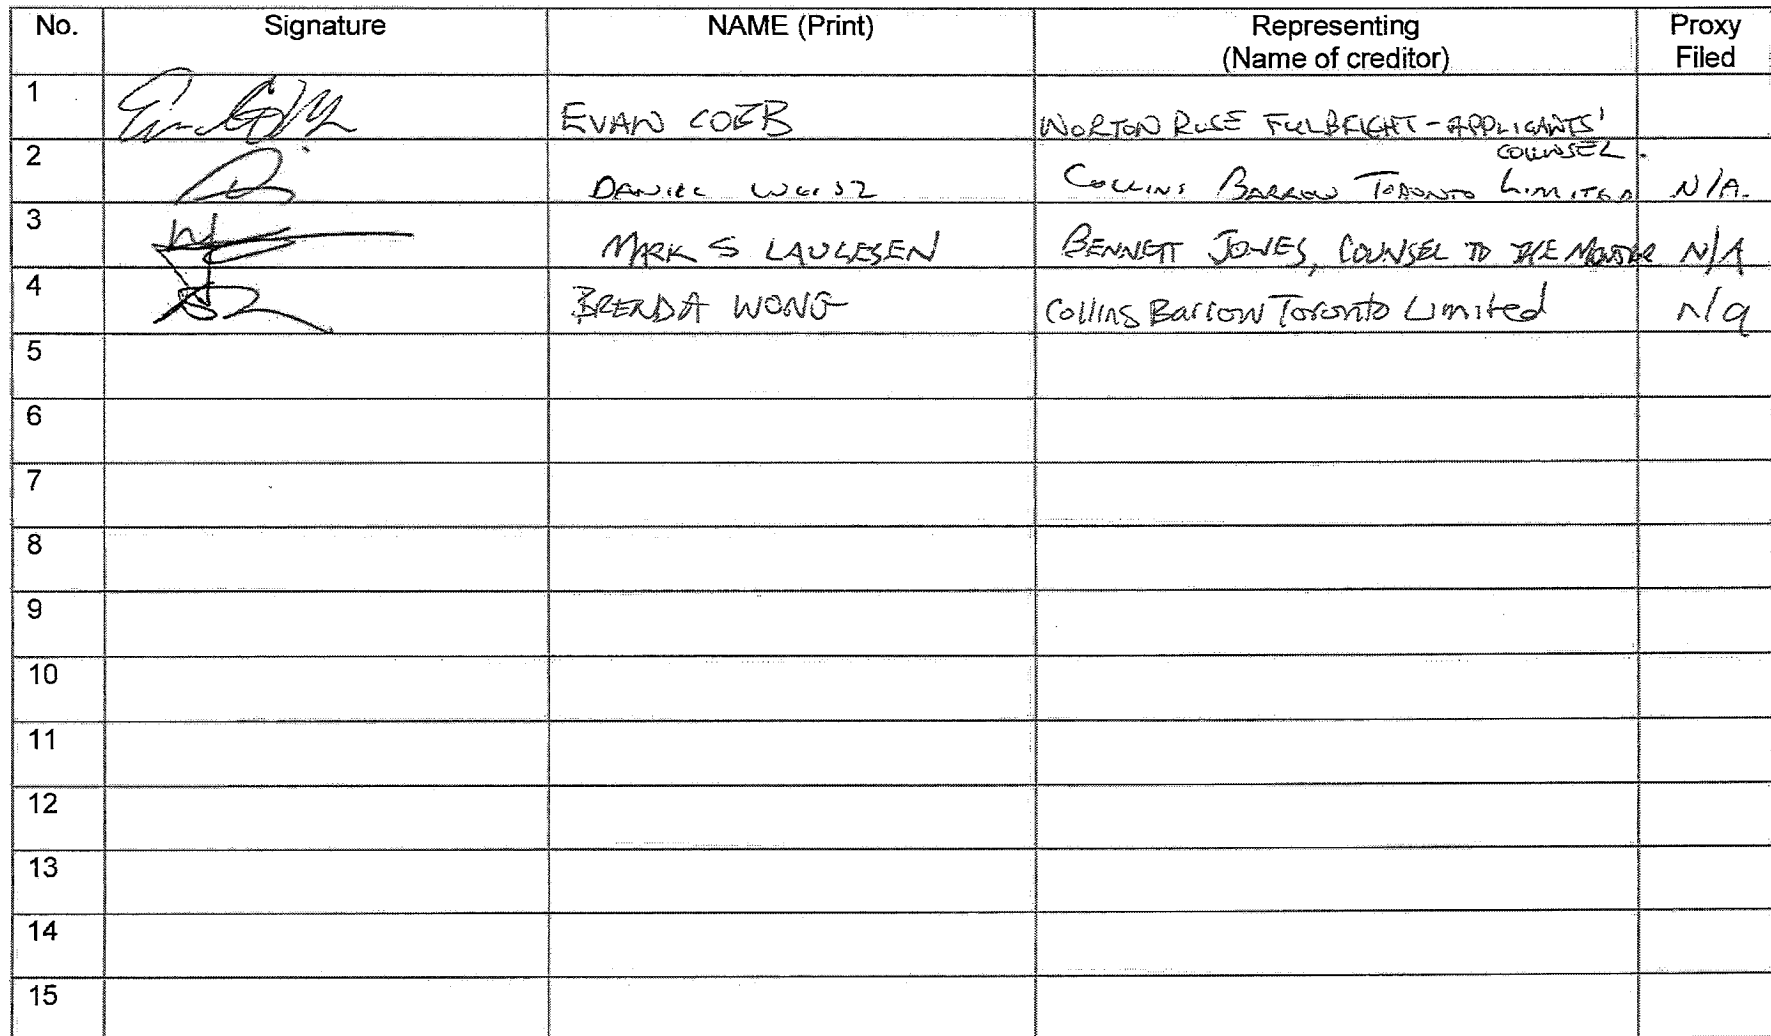 No. Signature NAME (Print) Representing Proxy
(Name of creditor) Filed
1 EVAN COBB NORTON ROSE FULBRIGHT - APPLICANTS'
COUNSEL.
2 DANIEL WEISZ COLLINS BARROW TORONTO LIMITED N/A.
3 MARK S LAUGESEN BENNETT JONES, COUNSEL TO THE MONITOR N/A
4 BRENDA WONG Collins Barrow Toronto Limited N/a
5
6
7
8
9
10
11
12
13
14
15